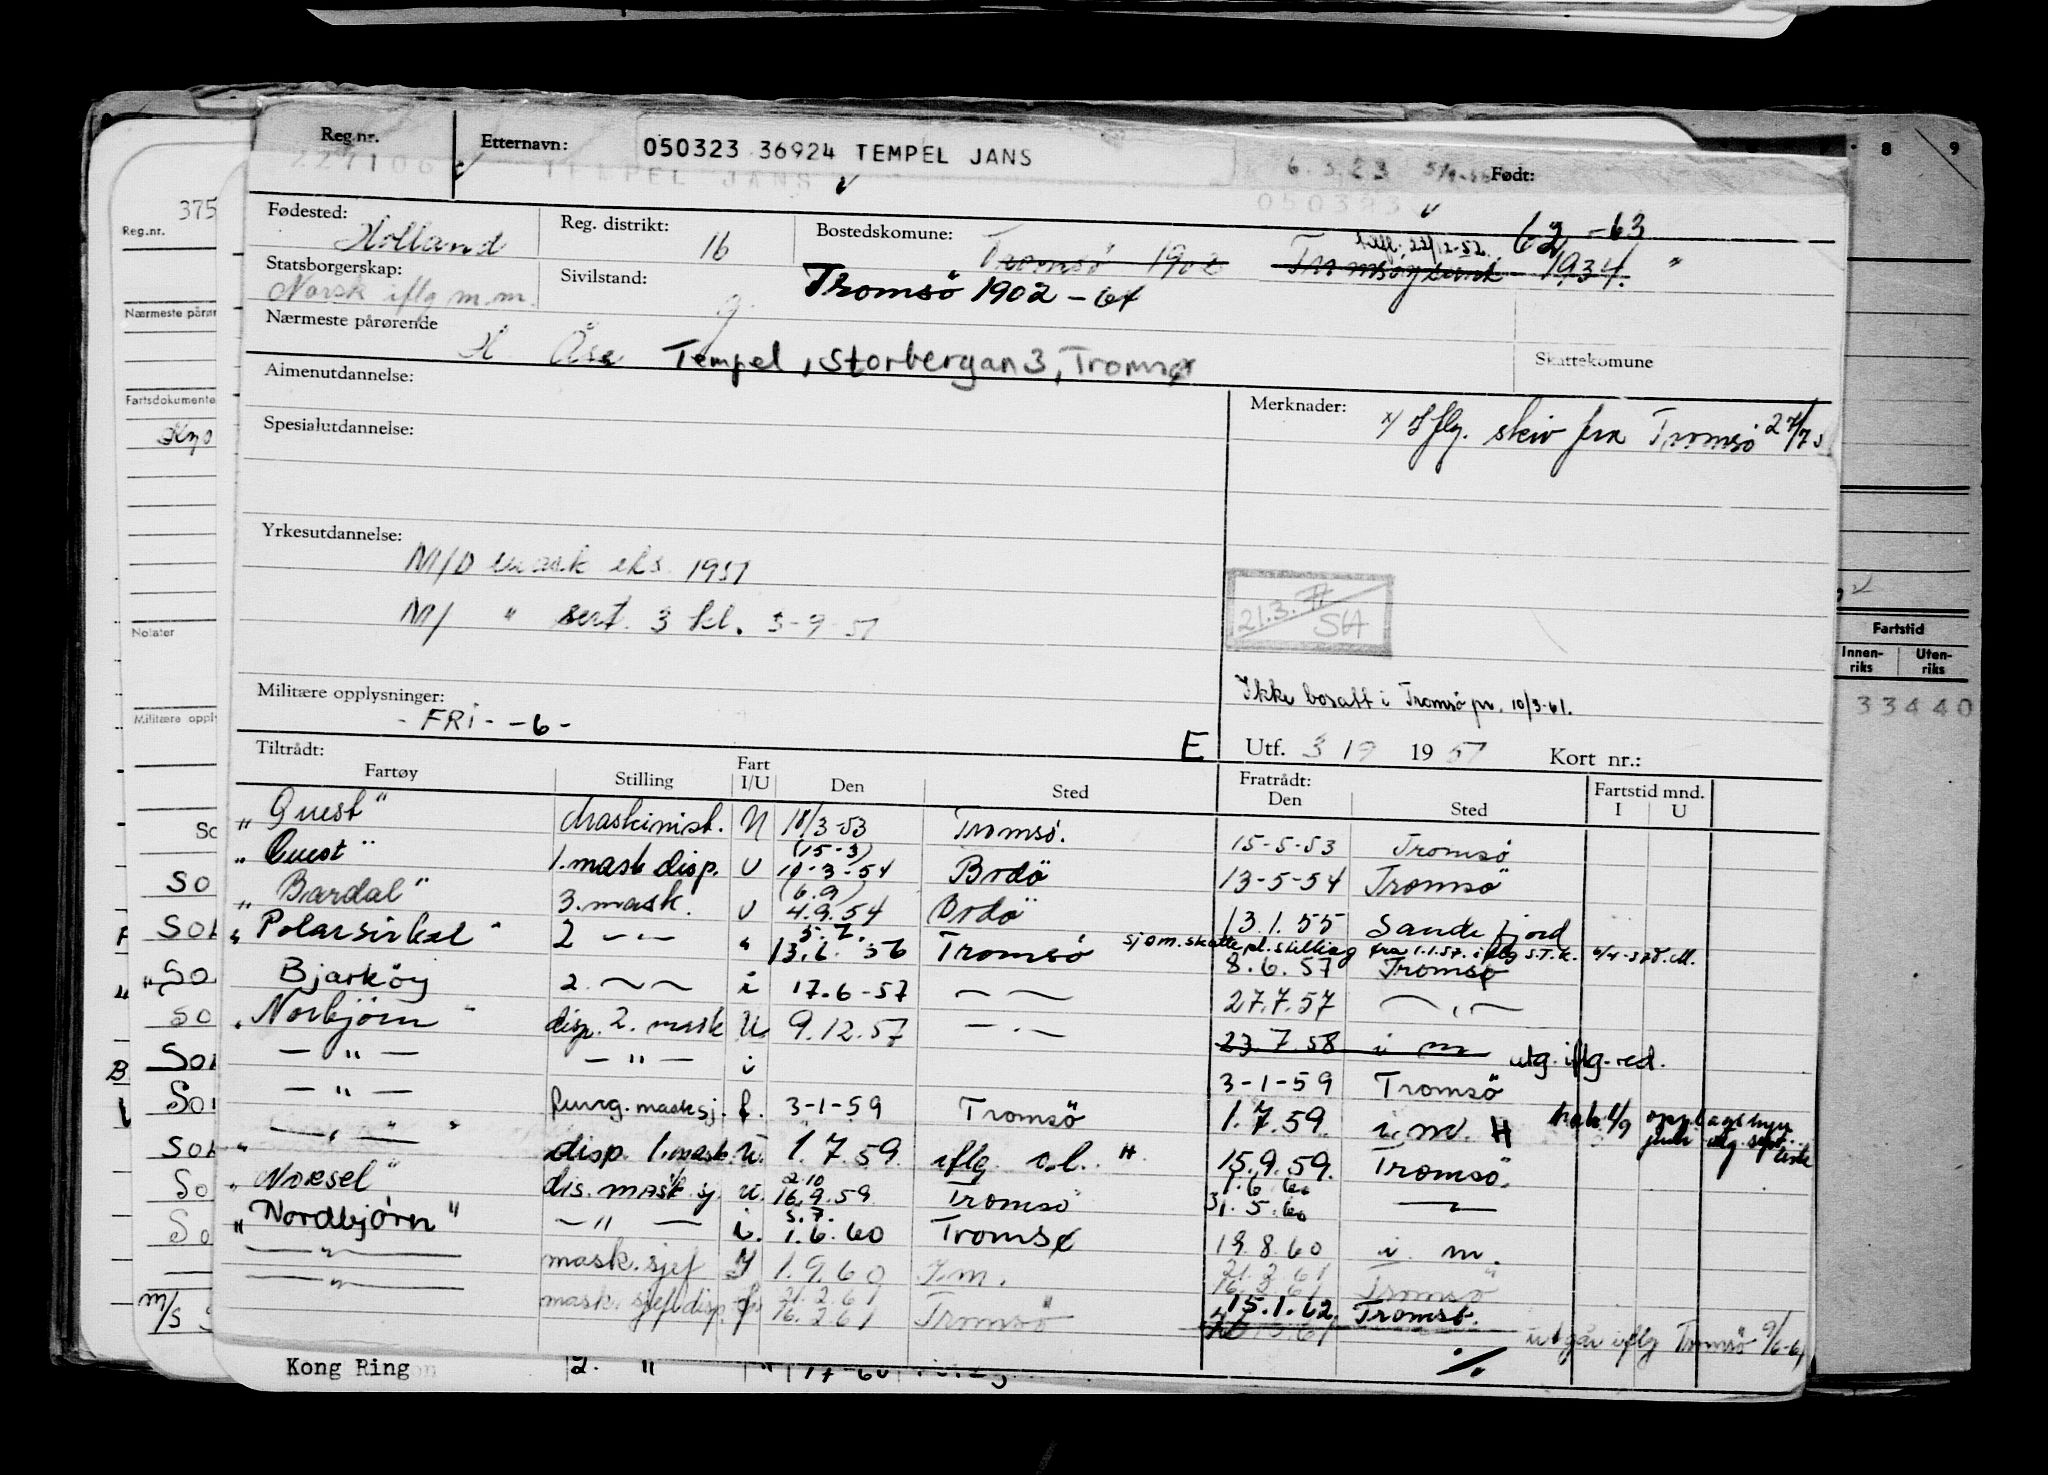 Reg.nr. Etternavn: 050323 36924 TEMPEL JANS Født:
227106 TEMPEL JANS 6.3.23
050323
Fødested: Holland Reg. distrikt: 16 Bostedskomune: Tromsö 1902 Tromsöysund 1934. " 62-63
Statsborgerskap: Norsk iflg m.m. Sivilstand: g. Tromsö 1902 - 64
Nærmeste pårørende H Åse Tempel, Storbergan 3, Tromsø Skattekomune
Almenutdannelse: Merknader: x/ Iflg. skriv fra Tromsö 27/7
Spesialutdannelse:
Yrkesutdannelse: M/D mask eks. 1951
M/ " sert. 3 kl. 3-9-51
21.3.77
SH
Militære opplysninger: -FRI- -6-
Ikke bosatt i Tromsö pr. 10/3-61.
E Utf. 3/9 1951 Kort nr.:
Tiltrådt: Fratrådt: Fartstid mnd.
Fartøy Stilling Fart I/U Den Sted Den Sted I U
"Quest" Maskinist. U 18/3-53 Tromsö. 15-5-53 Tromsö
"Quest" 1.mask disp. U (15-3) 10-3-54 Bodö 13-5-54 Tromsö
"Bardal" 3. mask. U (6.9) 4.9.54 Bodö 13.1.55 Sandefjord
"Polarsirkel" 2 — " — " 5.7. 13.6.56 Tromsö sjøm.skattepl. stilling fra 1.1.57. iflg S.T.K. 8.6.57 Tromsø
Bjarköy 2. — — i 17.6-57 — — 27.7.57 — " —
"Norbjörn" disp. 2. mask U 9.12.57 — . — 23.7.58 i m utg. iflg. red.
— " — — " — i 3-1-59 Tromsö
— " — fung. masksj. f. 3-1-59 Tromsö 1.7.59. i.m. H
— " — disp. 1.mask. U. 1.7.59. iflg. o.l. H. 15.9.59. Tromsö.
"Norsel" dis. mask. sj. U. 2.10 16.9.59 Tromsö 1.6.60 31.5.60 —
"Nordbjørn" — " — i. 5.7. 1.6.60 Tromsø 19.8.60 i m.
— " — mask. sjef I 1.9.60 I.m. 21.2.61 16.3.61 Tromsö
— " — mask. sjef disp. f 21.2.61 16.2.61 Tromsö 15.1.62. Tromsö. utgår iflg Tromsö 9/6-61
Kong Ring 2. "
375
Reg.nr.
Nærmeste pårør
Fartsdokumente
Notater
Militære oppl
8 9
Fartstid
Innen-riks Uten-riks
33440